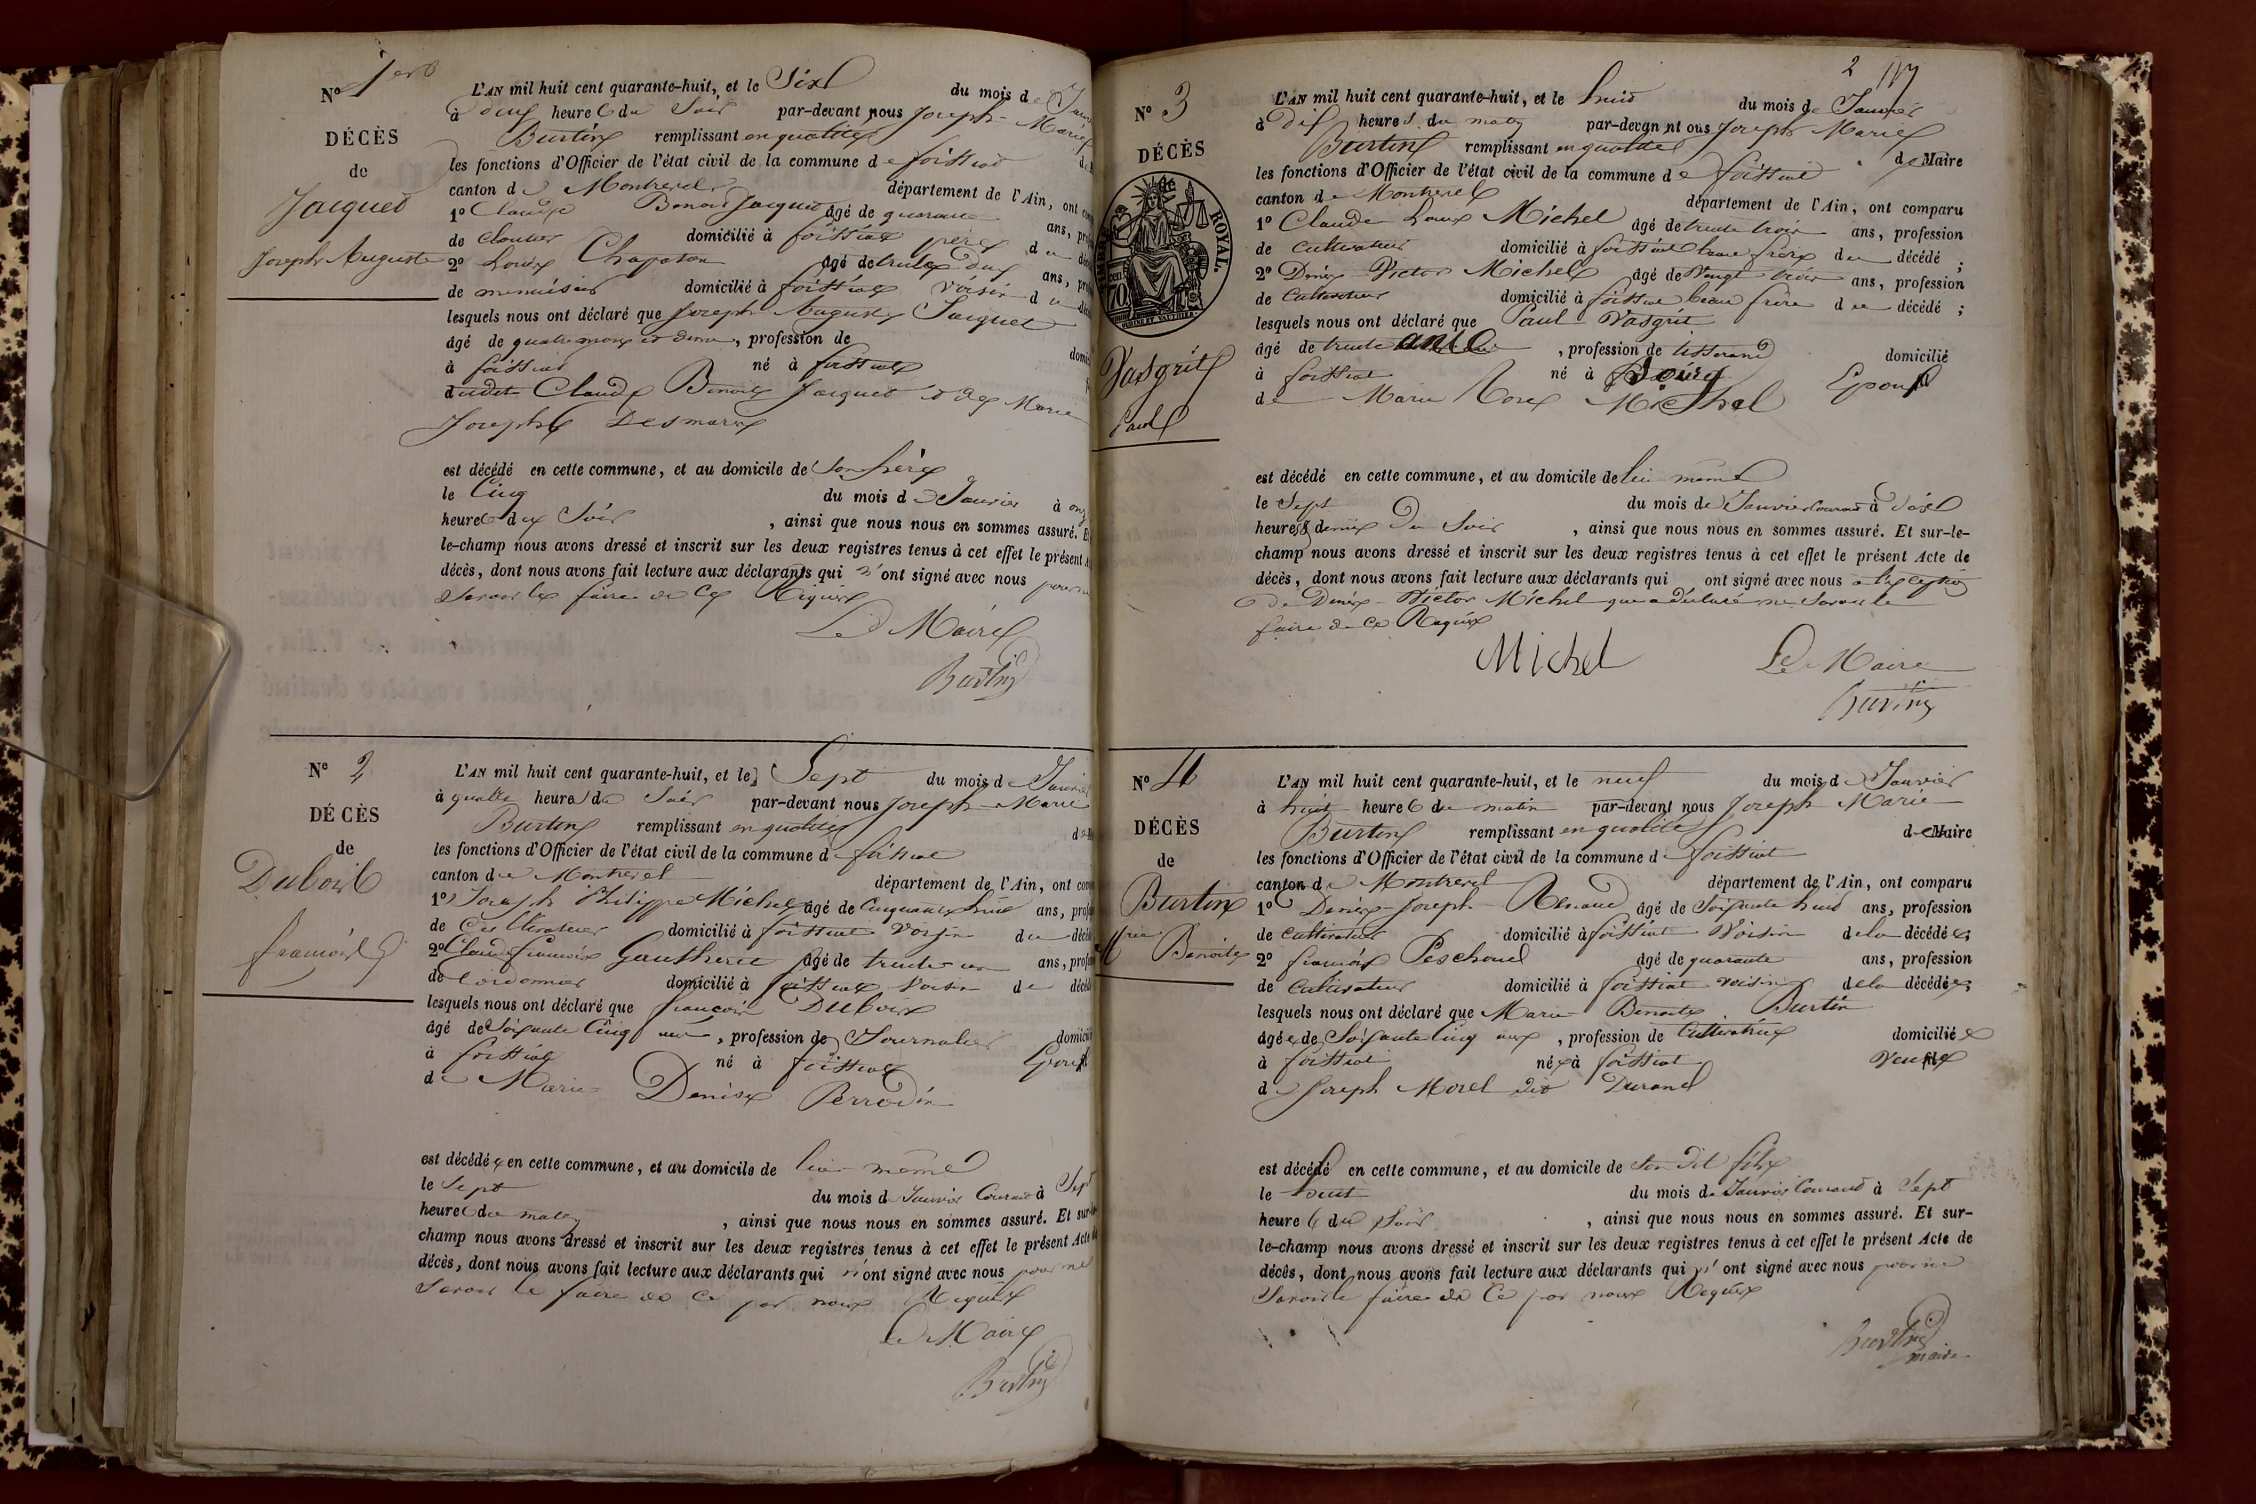 Nº 1er
DÉCÈS
de
Jacquet
Joseph Auguste
L'AN mil huit cent quarante-huit, et le Six du mois de
à deux heures du Soir par-devant nous Joseph Marie
Burtin remplissant en qualité
les fonctions d'Officier de l'état civil de la commune de foissiat
canton de Montrevel département de l'Ain, ont
1º Claude Benoit Jacquet âgé de quarante ans,
de cloutier domicilié à foissiat père du
2º Louis Chapaton âgé de trente deux ans,
de menuisier domicilié à foissiat voisin du
lesquels nous ont déclaré que Joseph Auguste Jacquet
âgé de quatre mois et demi, profession de
à foissiat né à foissiat
dudit Claude Benoit Jacquet et de Marie
Josephte Desmaris
est décédé en cette commune, et au domicile de Son père
le Cinq du mois de Janvier à
heures du Soir, ainsi que nous nous en sommes assuré.
le-champ nous avons dressé et inscrit sur les deux registres tenus à cet effet le présent
décès, dont nous avons fait lecture aux déclarants qui n'ont signé avec nous pour ne
Savoir le faire de ce Requis
Le Maire
Burtin
Nº 2
DÉCÈS
de
Dubois
françois
L'AN mil huit cent quarante-huit, et le Sept du mois de Janvier
à quatre heures du Soir par-devant nous Joseph Marie
Burtin remplissant en qualité
les fonctions d'Officier de l'état civil de la commune de foissiat
canton de Montrevel département de l'Ain, ont
1º Joseph Philippe Michel âgé de Cinquante huit ans,
de Cultivateur domicilié à foissiat Voisin du
2º Claude françois Gautheret âgé de trente un ans,
de Cordonnier domicilié à foissiat Voisin du
lesquels nous ont déclaré que françois Dubois
âgé de Soixante Cinq ans, profession de Journalier
à foissiat né à foissiat Epoux
de Marie Denise Perrodin
est décédé en cette commune, et au domicile de lui même
le Sept du mois de Janvier Courant à Sept
heures du matin, ainsi que nous nous en sommes assuré. Et sur-le-
champ nous avons dressé et inscrit sur les deux registres tenus à cet effet le présent Acte de
décès, dont nous avons fait lecture aux déclarants qui n'ont signé avec nous pour ne
Savoir le faire de ce par nous Requis
Le Maire
Burtin
2
Nº 3
DÉCÈS
de
ROYAL.
Vasgrit
Paul
L'AN mil huit cent quarante-huit, et le huit du mois de Janvier
à Dix heures du matin par-devant nous Joseph Marie
Burtin remplissant en qualité de Maire
les fonctions d'Officier de l'état civil de la commune de foissiat
canton de Montrevel département de l'Ain, ont comparu
1º Claude Louis Michel âgé de trente trois ans, profession
de Cultivateur domicilié à foissiat beau frère du décédé ;
2º Denis Victor Michel âgé de Vingt trois ans, profession
de Cultivateur domicilié à foissiat beau frère du décédé ;
lesquels nous ont déclaré que Paul Vasgrit
âgé de trente ans, profession de tisserand domicilié
à foissiat né à Bourg Epoux
de Marie Rose Michel
est décédé en cette commune, et au domicile de lui même
le Sept du mois de Janvier Courant à Six
heures & demie du Soir, ainsi que nous nous en sommes assuré. Et sur-le-
champ nous avons dressé et inscrit sur les deux registres tenus à cet effet le présent Acte de
décès, dont nous avons fait lecture aux déclarants qui ont signé avec nous à l'exception
de Denis Victor Michel qui a déclaré ne Savoir le
faire de ce Requis
Michel Le Maire
Burtin
Nº 4
DÉCÈS
de
Burtin
Mie Benoite
L'AN mil huit cent quarante-huit, et le neuf du mois de Janvier
à huit heures du matin par-devant nous Joseph Marie
Burtin remplissant en qualité de Maire
les fonctions d'Officier de l'état civil de la commune de foissiat
canton de Montrevel département de l'Ain, ont comparu
1º Denis Joseph Renaud âgé de Soixante huit ans, profession
de Cultivateur domicilié à foissiat Voisin de la décédée;
2º françois Peschoud âgé de quarante ans, profession
de Cultivateur domicilié à foissiat voisin de la décédée;
lesquels nous ont déclaré que Marie Benoite Burtin
âgée de Soixante Cinq ans, profession de Cultivatrice domiciliée
à foissiat née à foissiat Veuve
de Joseph Morel dit Durand
est décédé en cette commune, et au domicile de Son dit fils
le huit du mois de Janvier Courant à Sept
heures du Soir, ainsi que nous nous en sommes assuré. Et sur-
le-champ nous avons dressé et inscrit sur les deux registres tenus à cet effet le présent Acte de
décès, dont nous avons fait lecture aux déclarants qui n'ont signé avec nous pour ne
Savoir le faire de ce par nous Requis
Burtin
maire